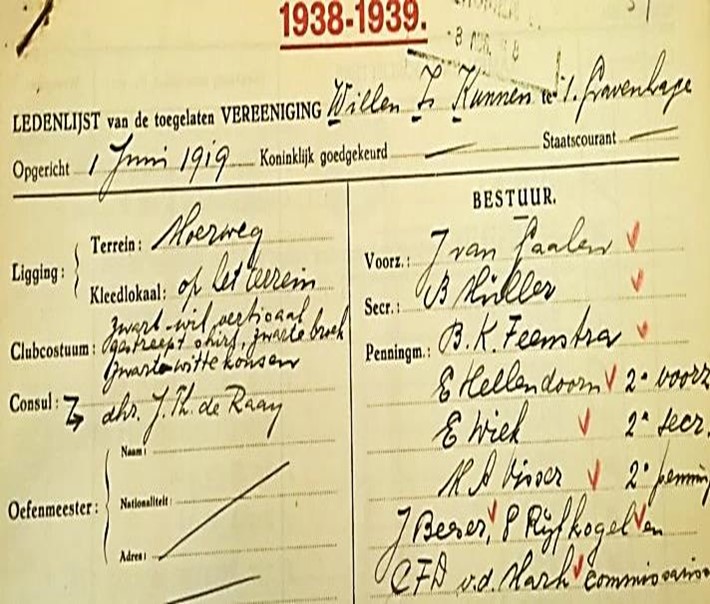 1938-1939.
- 3 AUG.
LEDENLIJST van de toegelaten VEREENIGING Willen Is Kunnen te 's. Gravenhage
Opgericht 1 Juni 1919 Koninklijk goedgekeurd — Staatscourant —
Ligging:
Terrein: Moerweg
Kleedlokaal: op het terrein
Clubcostuum: zwart-wit vertikaal
gestreept shirt, zwarte broek
zwart-witte kousen
Consul: dhr. J. Th. de Raay
Oefenmeester:
Naam:
Nationaliteit:
Adres:
BESTUUR.
Voorz.: J van Gaalen
Secr.: B Müller
Penningm.: B. K. Feenstra
E Hellendoorn 2e voorz
E Wiek 2e secr.
H A Visser 2e penning
J Beser, P Rijfkogel en
CFA v.d. Mark commissaris